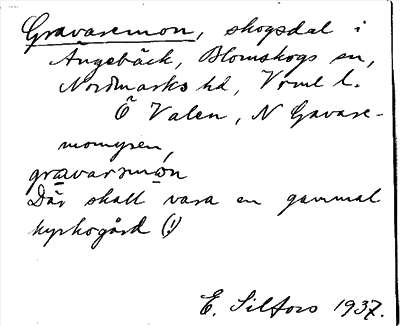 Gravaremon, skogsdal i
Ängebäck, Blomskogs sn,
Nordmarks hd, Vrml l.
Ö Valen, N Gavare-
momyren,
gravarmon
Där skall vara en gammal
kyrkogård (!)
E. Silfors 1937.